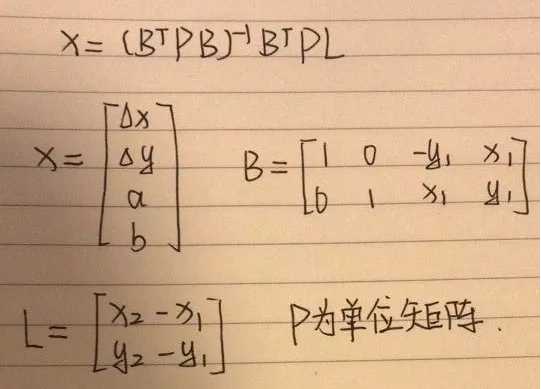 X = (BᵀPB)⁻¹BᵀPL
X = [Δx
Δy
a
b]
B = [1 0 -y₁ x₁
0 1 x₁ y₁]
L = [x₂ - x₁
y₂ - y₁]
P为单位矩阵.